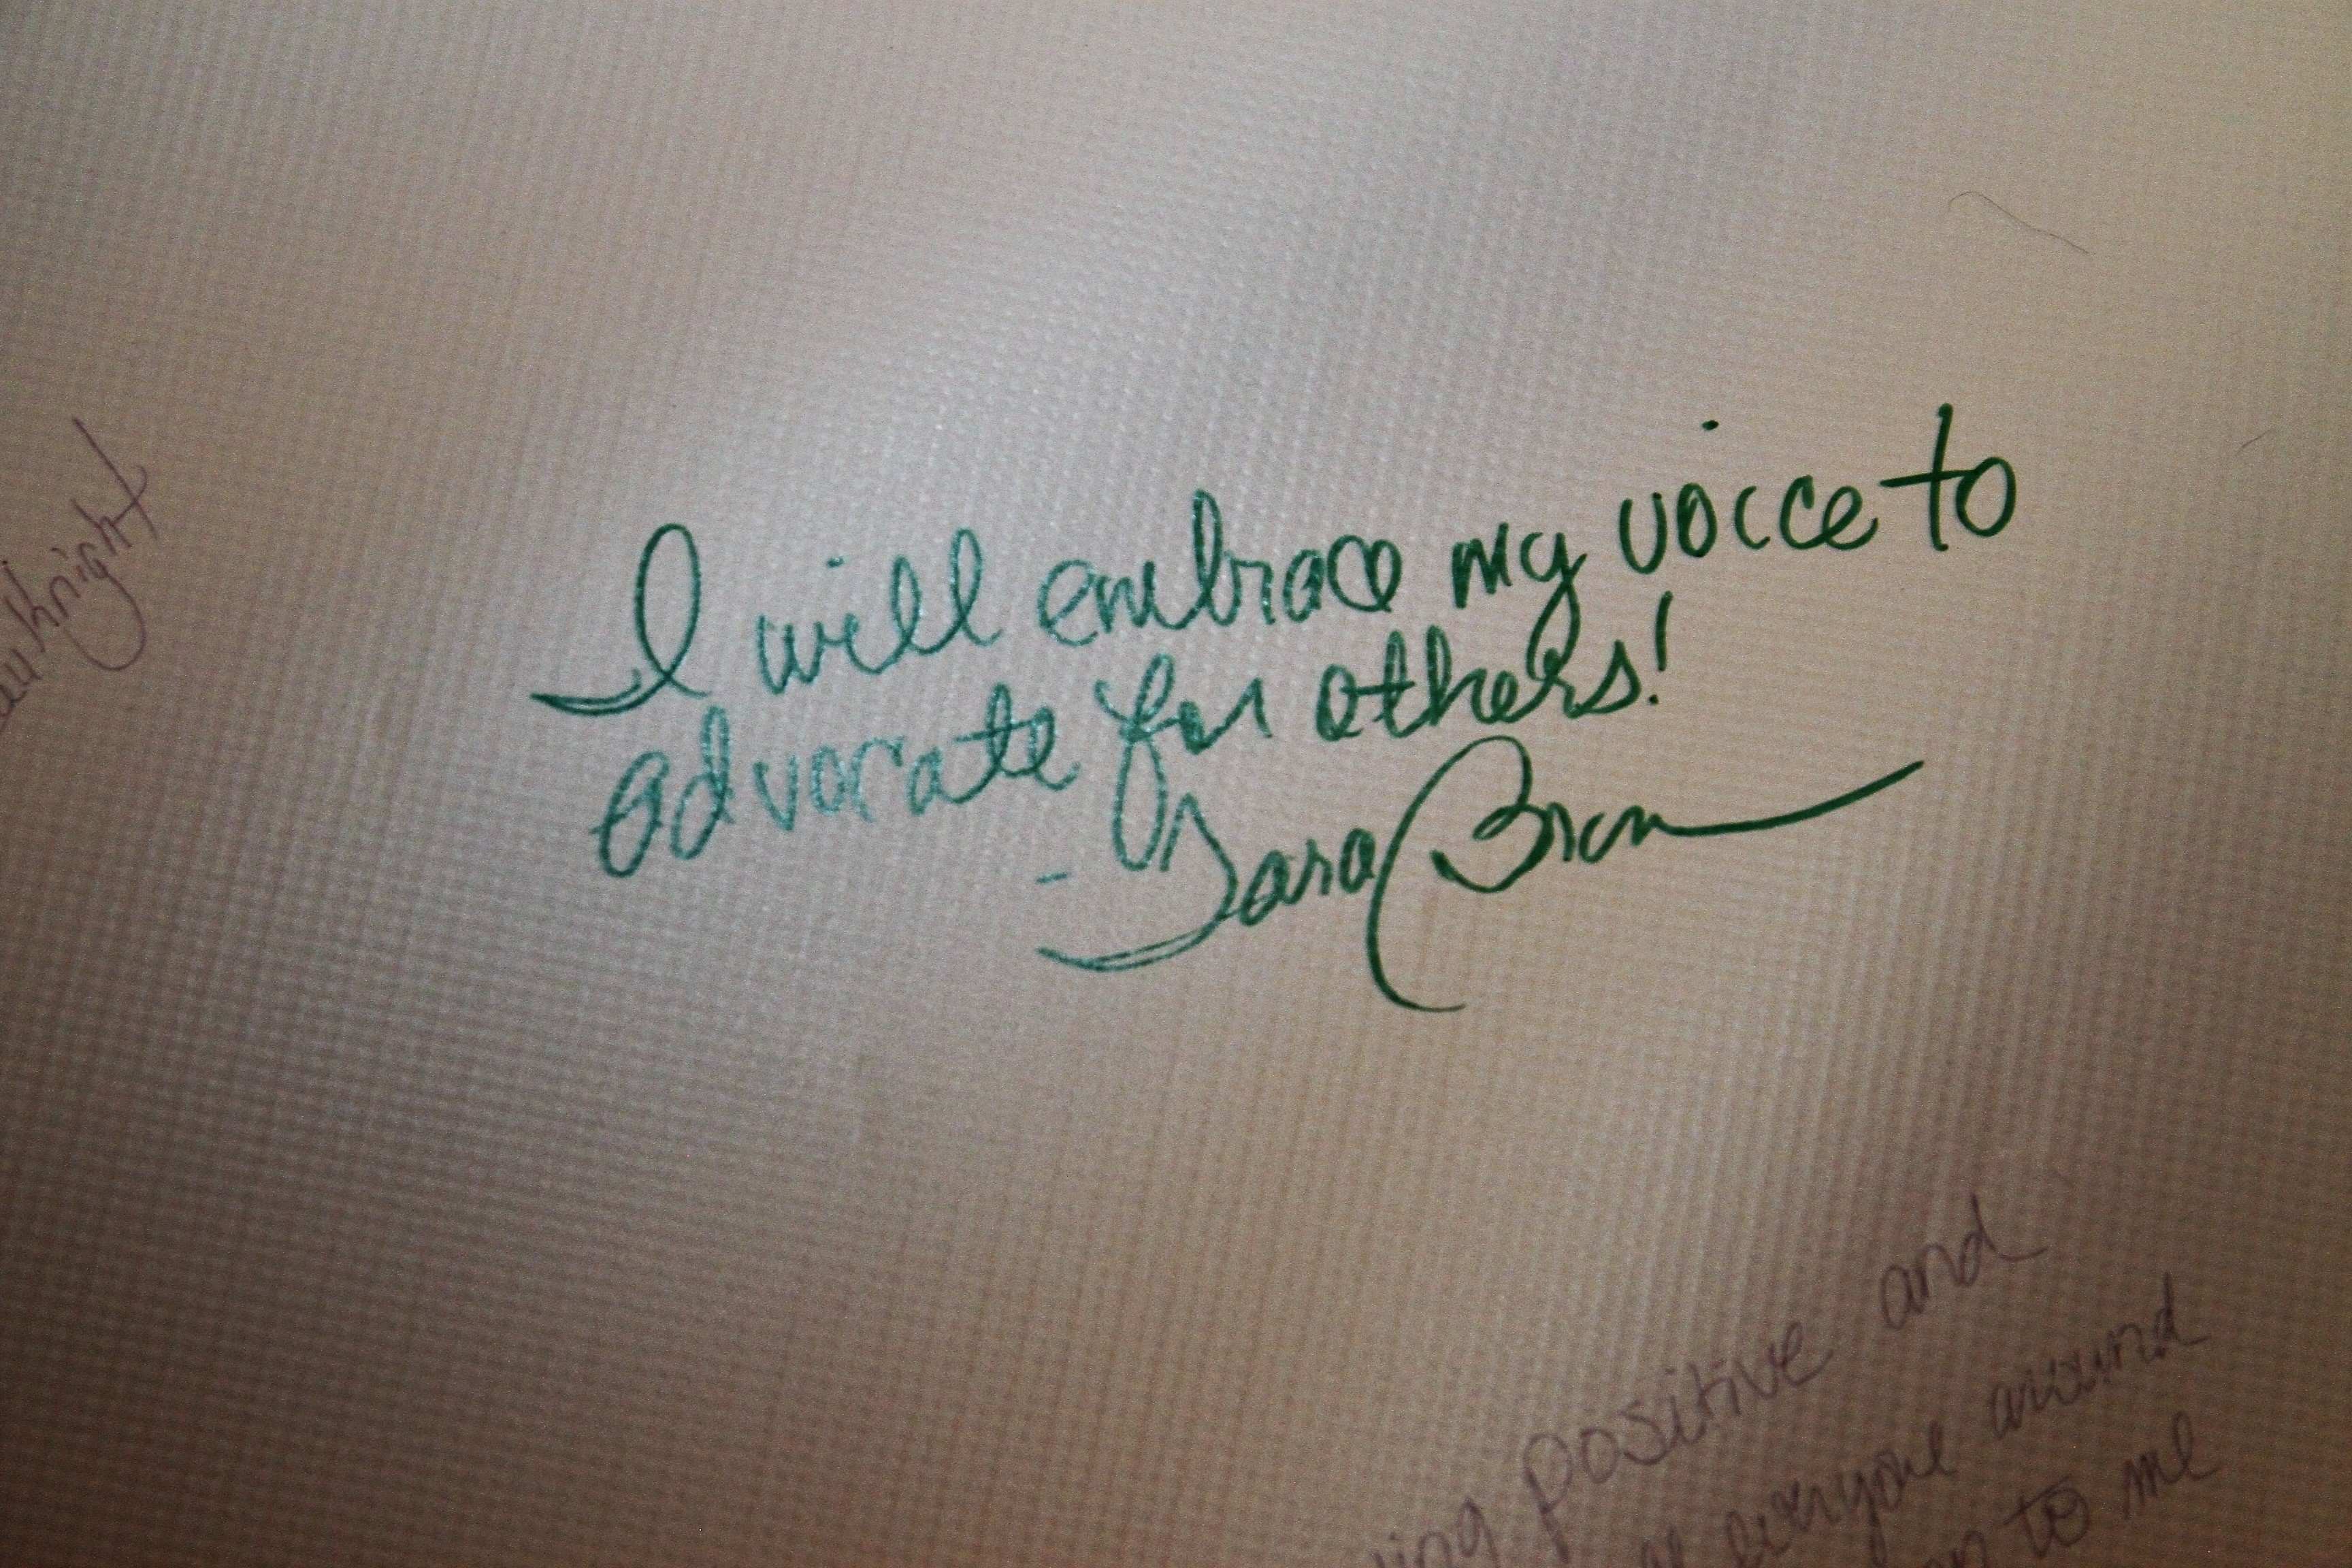 Knight
I will embrace my voice to
advocate for others!
- Sara Brown
positive and
everyone around
to me